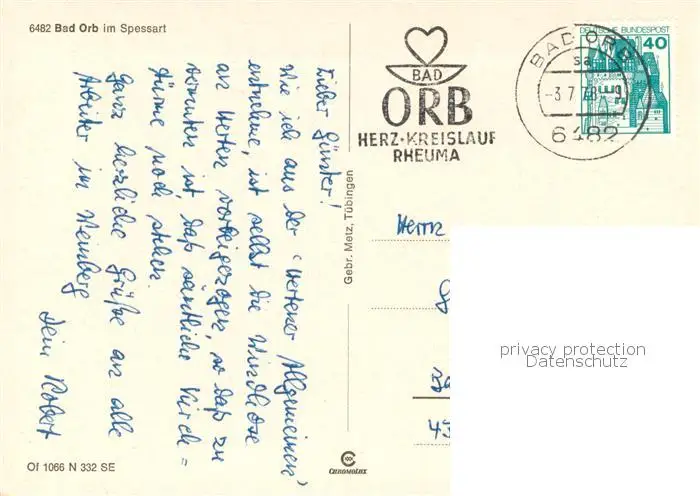 6482 Bad Orb im Spessart
Lieber Günter!
Wie ich aus der "Hertener Allgemeinen"
entnehme, ist selbst die Windhose
an Herten vorbeigezogen, so daß zu
vermuten ist, daß sämtliche Kirch=
türme noch stehen.
Ganz herzliche Grüße an alle
Arbeiter im Weinberg
Dein Robert
Of 1066 N 332 SE
Gebr. Metz, Tübingen
CHROMOLUX
BAD
ORB
HERZ-KREISLAUF
RHEUMA
BAD ORB
sa
-3.7.78.-9
6482
DEUTSCHE BUNDESPOST
40
Herrn
45
privacy protection
Datenschutz